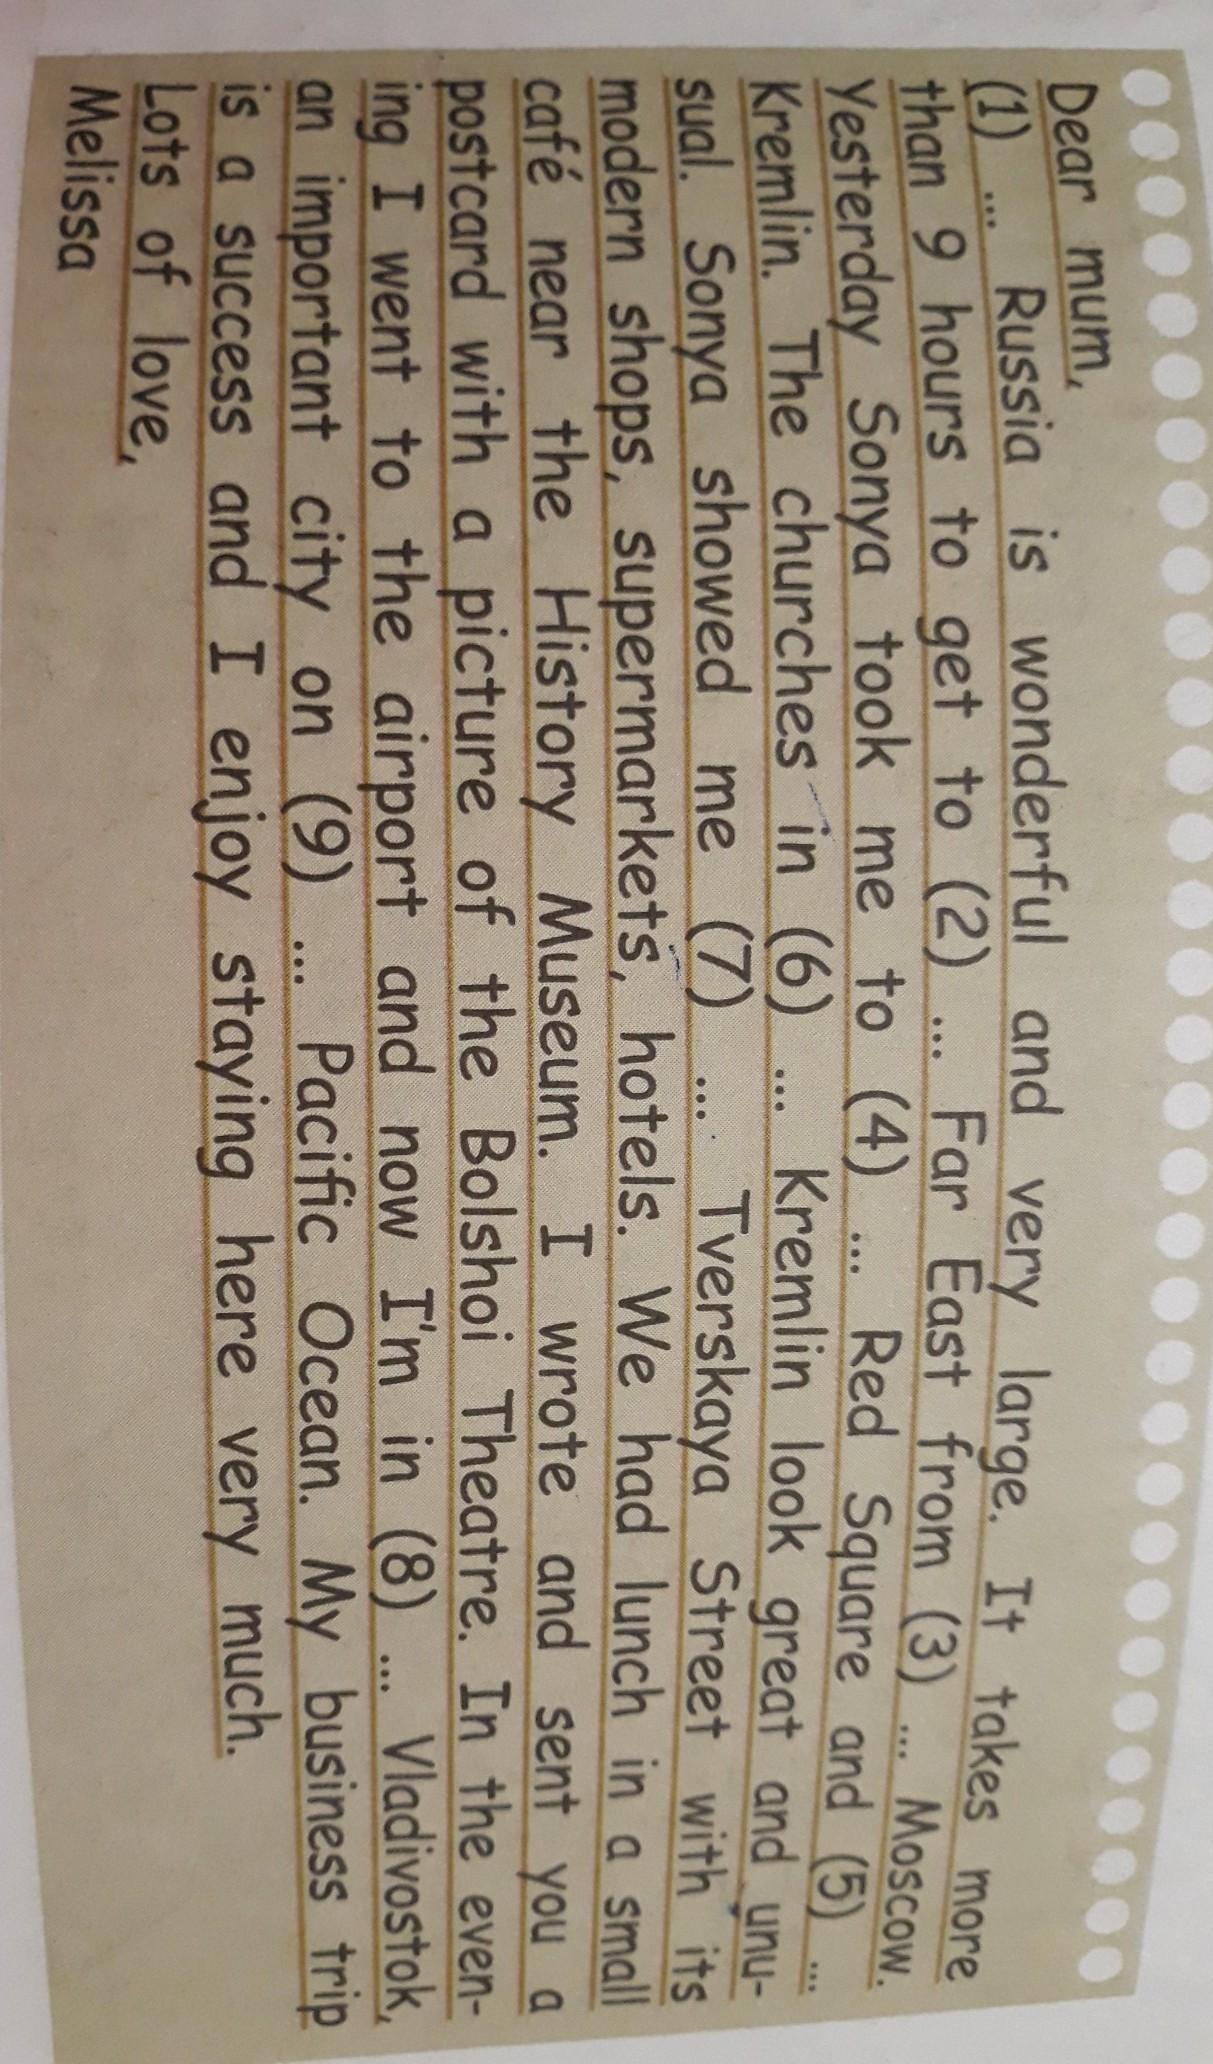 Dear mum,
(1) ... Russia is wonderful and very large. It takes more
than 9 hours to get to (2) ... Far East from (3) ... Moscow.
Yesterday Sonya took me to (4) ... Red Square and (5) ...
Kremlin. The churches in (6) ... Kremlin look great and unu-
sual. Sonya showed me (7) ... Tverskaya Street with its
modern shops, supermarkets, hotels. We had lunch in a small
café near the History Museum. I wrote and sent you a
postcard with a picture of the Bolshoi Theatre. In the even-
ing I went to the airport and now I'm in (8) ... Vladivostok,
an important city on (9) ... Pacific Ocean. My business trip
is a success and I enjoy staying here very much.
Lots of love,
Melissa